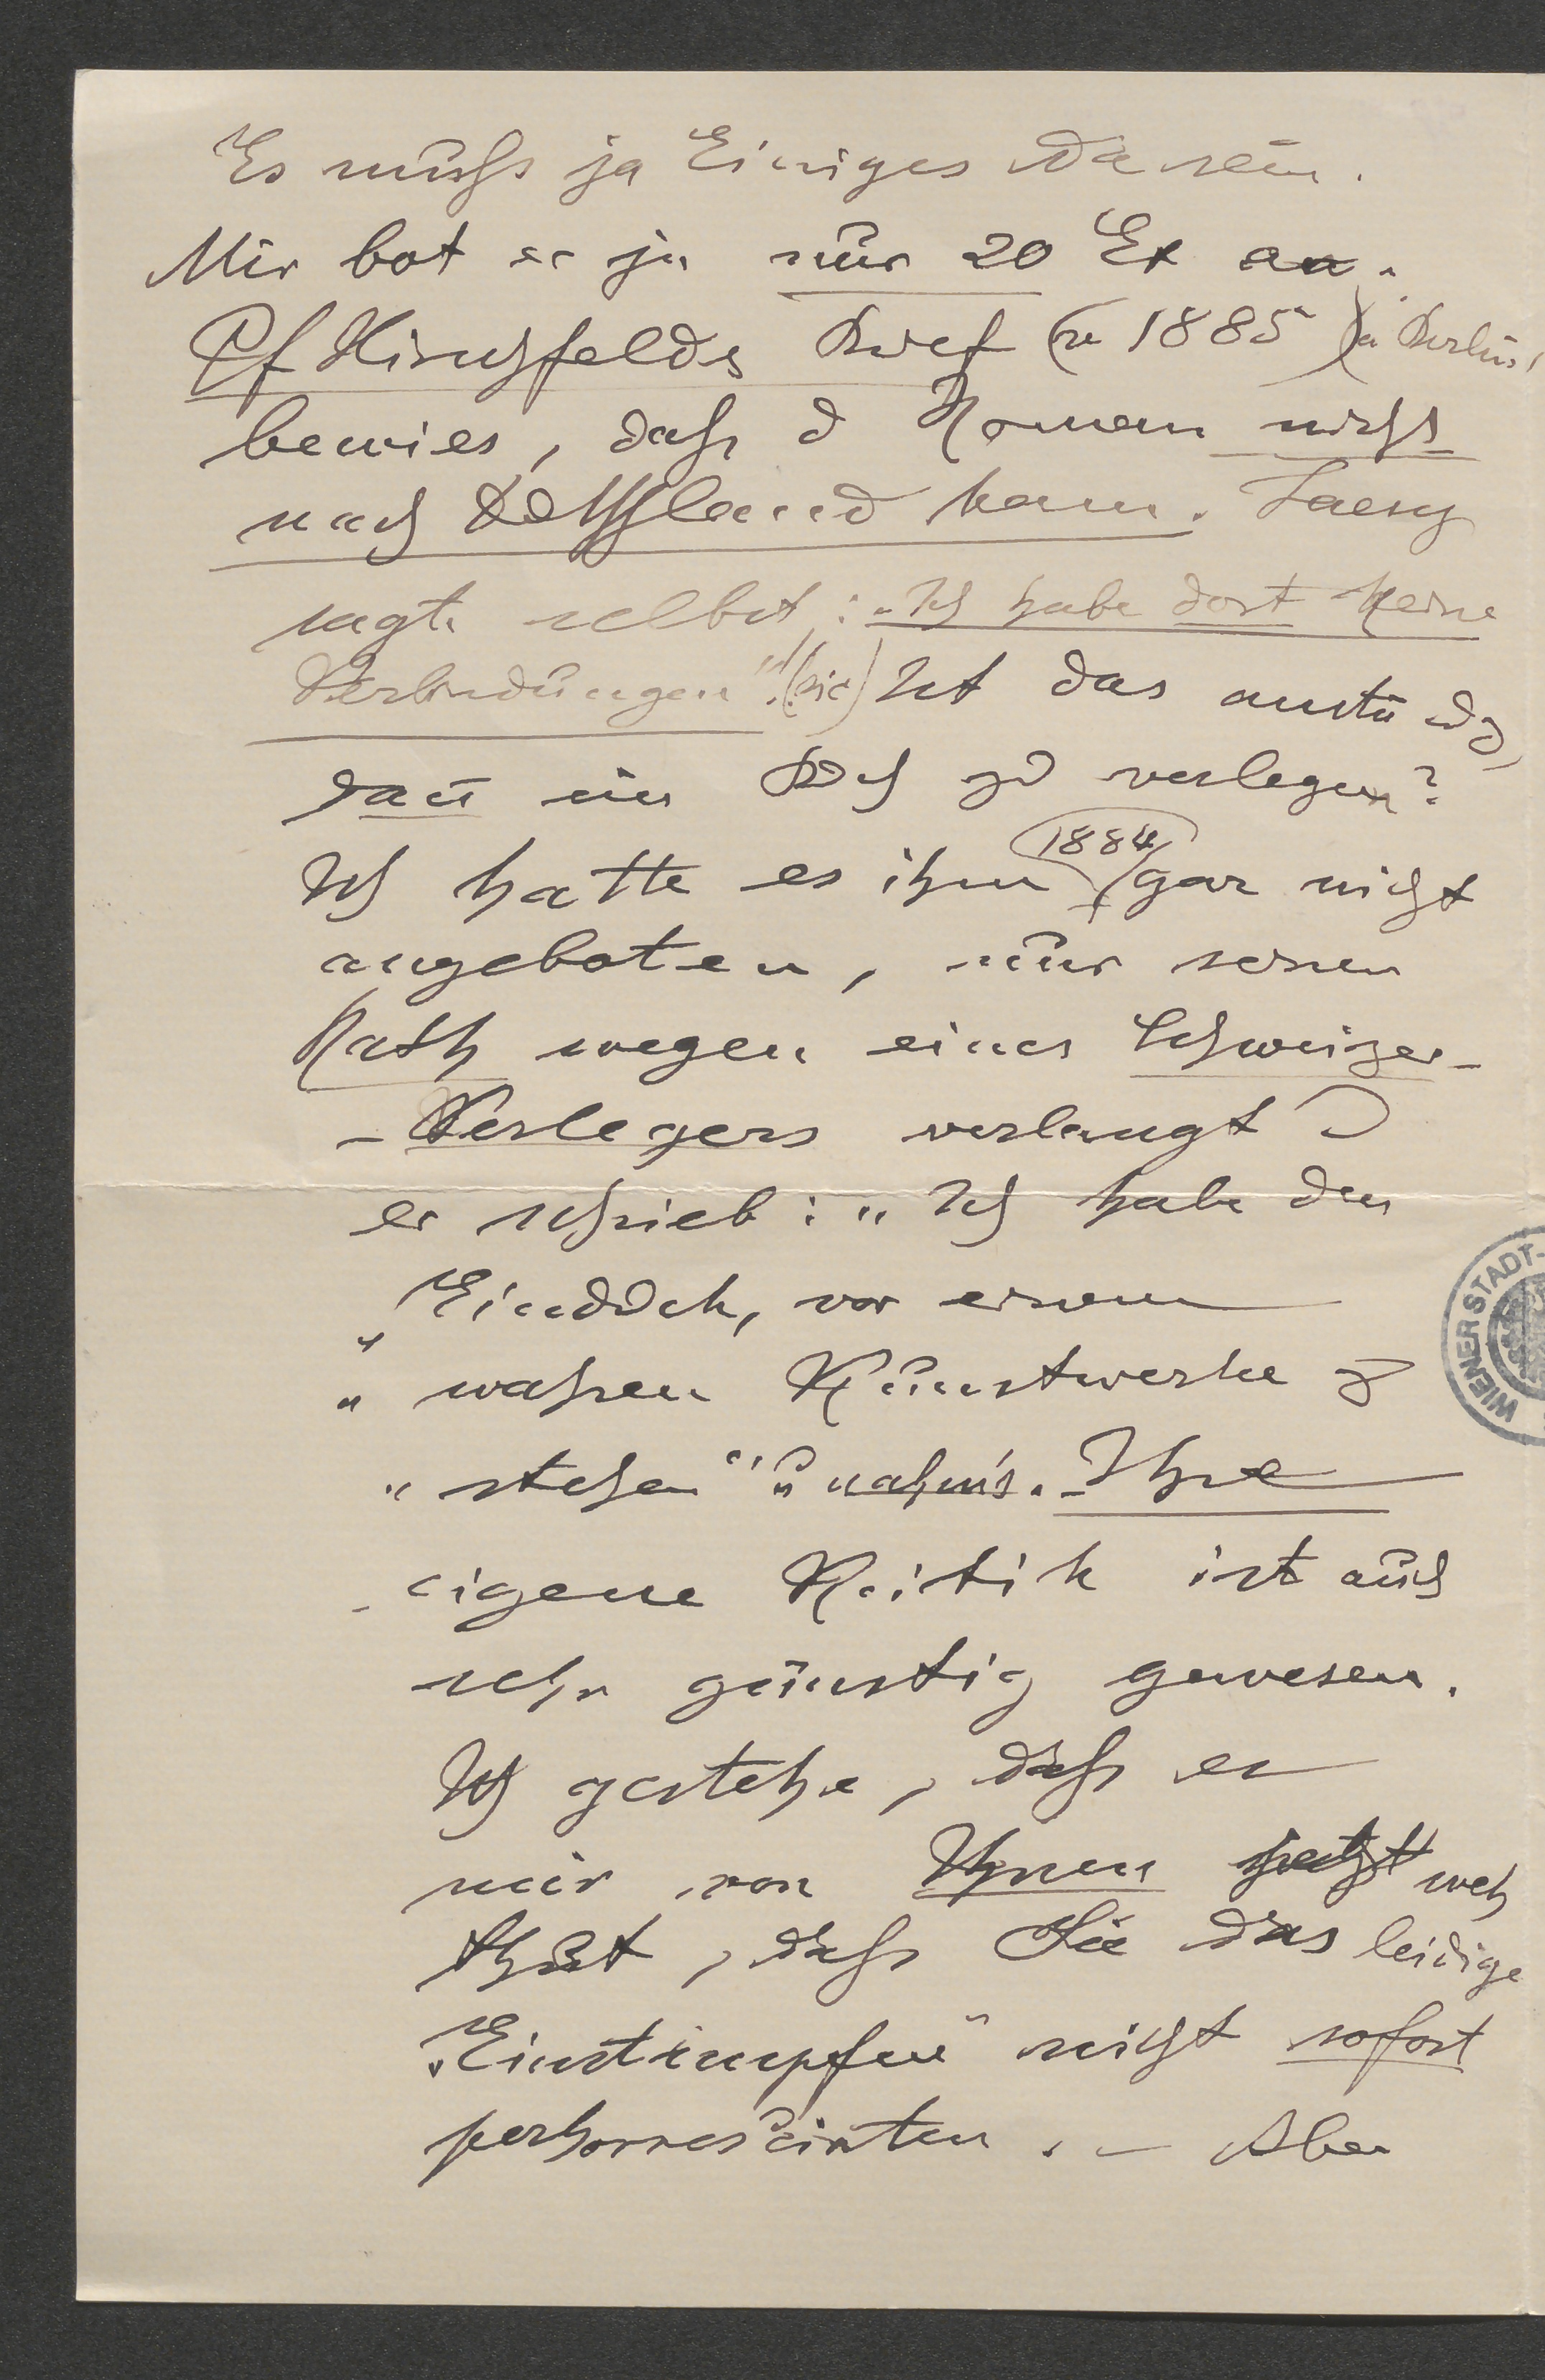 Es muß ja Einiges da sein.
Mir bot er ja nur 20 Ex an.
Pf Hirschfelds Brief (v 1885) (a Berlin)
bewies, daß d Roman nicht
nach Dtschland kam.
sagte selbst: „Ich habe dort keine
Verbindungen"! (sic) Ist das anständg,
dann ein Bch zu verlegen?
Ich hatte es ihm 1884 gar nicht
angeboten, nur seinen
Rath wegen eines Schweizer-
-Verlegers verlangt
er schrieb: „Ich habe den
„Eindrck, vor einem
„wahren Kunstwerke z
„stehen" u nahm's. Ihre
eigene Kritik ist auch
sehr günstig gewesen.
Ich gestehe, daß es
mir von Ihnen jetzt weh
thut, daß Sie das leidige
„Einstampfen" nicht sofort
perhorrescirten. – Aber
WIENER STADT-